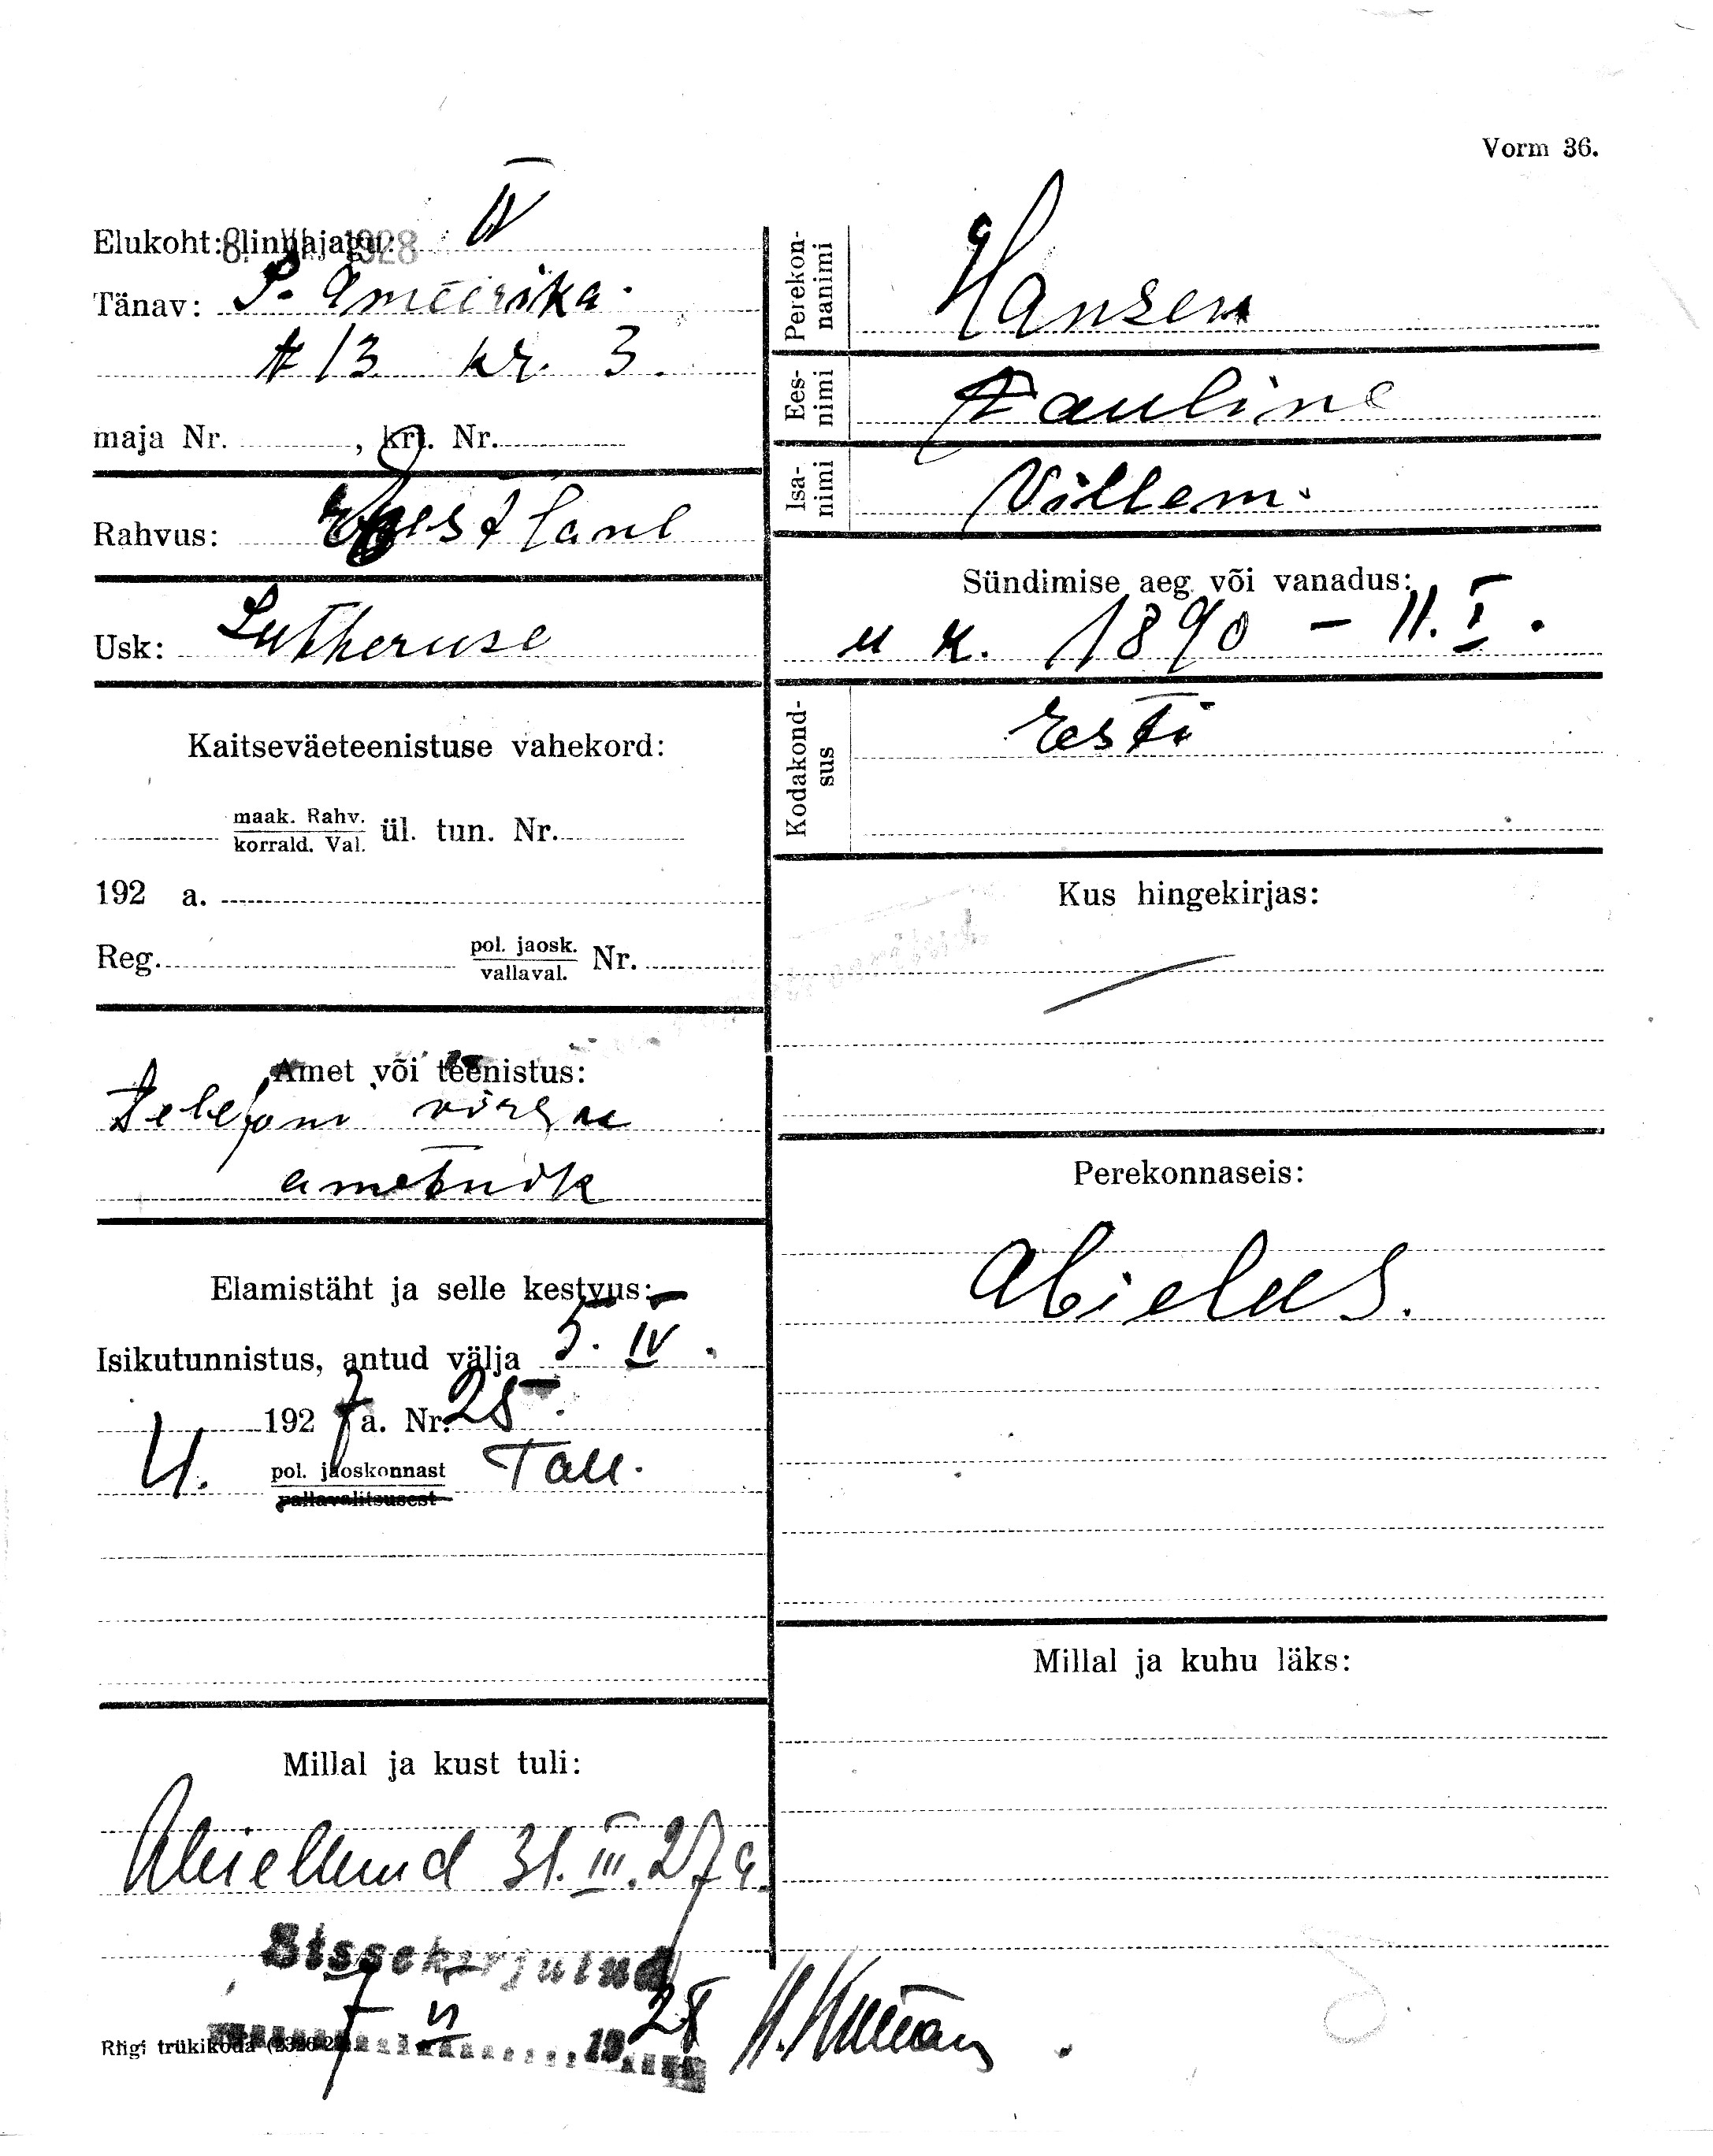 Vorm 36.
Elukoht: linnajagu: IV
Tänav: P. Ameerika.
# 13 kr. 3.
maja Nr. , krt. Nr.
Rahvus: Eestlane
Usk: Lutheruse
Kaitseväeteenistuse vahekord:
maak. Rahv.
korrald. Val. ül. tun. Nr.
192 a.
Reg. pol. jaosk.
vallaval. Nr.
Amet või teenistus:
Telefoni võrgu
ametnik
Elamistäht ja selle kestvus:
Isikutunnistus, antud välja 5. IV.
1927 a. Nr. 25.
4. pol. jaoskonnast Tall.
vallavalitsusest
Millal ja kust tuli:
Abiellund 31. III. 27 a.
Sissekirjutud
7 VI 1928
Riigi trükikoda
Perekonnanimi Hansen
Eesnimi Pauline
Isanimi Villem.
Sündimise aeg või vanadus:
u k. 1890 – 11. I.
Kodakondsus Eesti
Kus hingekirjas:
Perekonnaseis:
Abielus.
Millal ja kuhu läks: